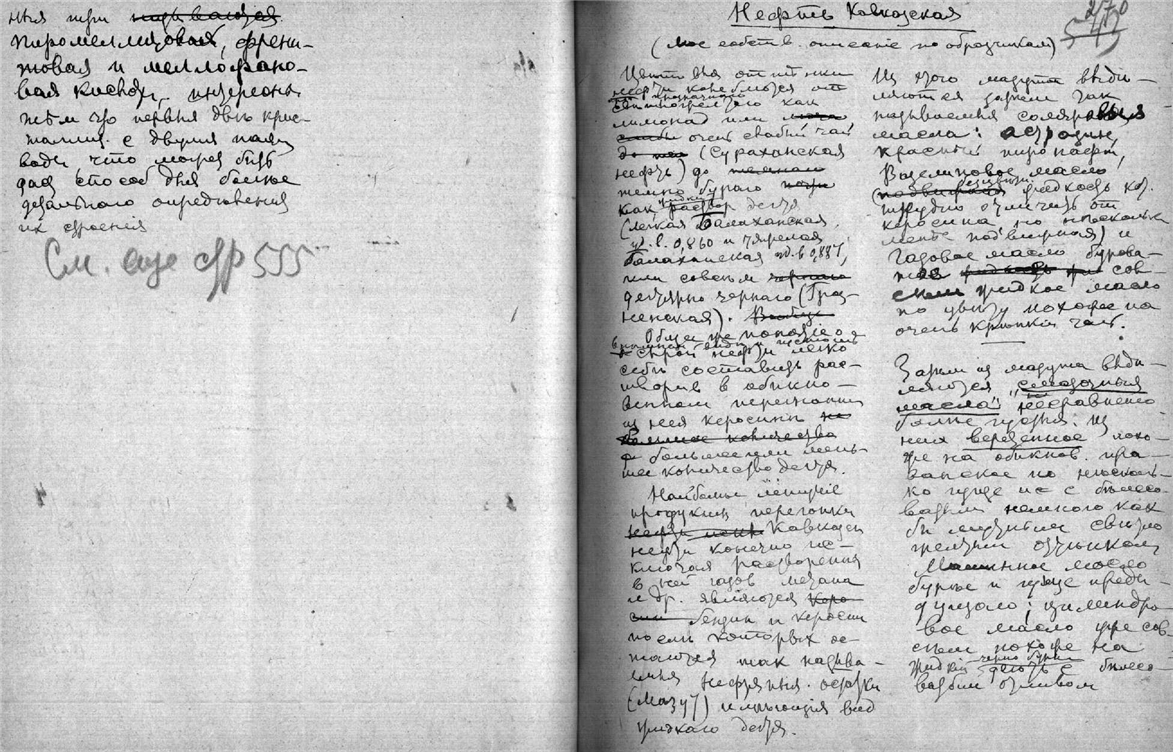 ныя три
пиромеллитовая, френи-
товая и меллофано-
вая кислоты, интересны
тем что первыя две крис-
таллиз. с двумя паями
воды что может быть
даст способ для более
детального определения
их строения
См. еще стр 555
Нефть Кавказская
(мое собств. описание по образчикам)
Цветъ ея оттенки
нефти колеблются от
прозрачного как
лимонад или
очень слабый чай
(Сураханская
нефть) до
темно бураго
как жидкий деготь
(легкая Балаханская
уд. в. 0,860 и тяжелая
Балаханская уд. в 0,887,
или совсем
дегтярно чернаго (Гроз-
ненская).
Общее же понятие о
сырой нефти легко
себе составить рас-
творив в обыкно-
венном перегонном
из нея керосине
большее или мень-
шее количество дегтя.
Наиболее летучие
продукты перегонки
Кавказск
нефти конечно ис-
ключая растворения
в ней газов метана
и др. являются
бензин и керосин
после которых ос-
таются так называ-
емыя нефтяные остатки
(Мазут) имеющия вид
жидкаго дегтя.
Из этого мазута выде-
ляются затем так
называемыя соляровыя
масла: астролин,
красный пиронафт,
Вазелиновое масло
(безцветн. жидкость кот.
трудно отличить от
керосина но несколько
менее подвижная) и
Газовое масло бурова-
тое сов-
сем жидкое масло
по цвету похожее на
очень крепкий чай.
Затем из мазута выде-
ляются "смазочныя
масла" несравненно
более густыя: из
них веретенное похо-
же на обыкнов. про-
ванское но несколь-
ко гуще и с
немного как
бы мутным свето
желтым оттенком
Машинное масло
бурое и гуще преды-
дущаго; цилиндро-
вое масло уже сов-
сем похоже на
жидкий черно бурый деготь с
отливом